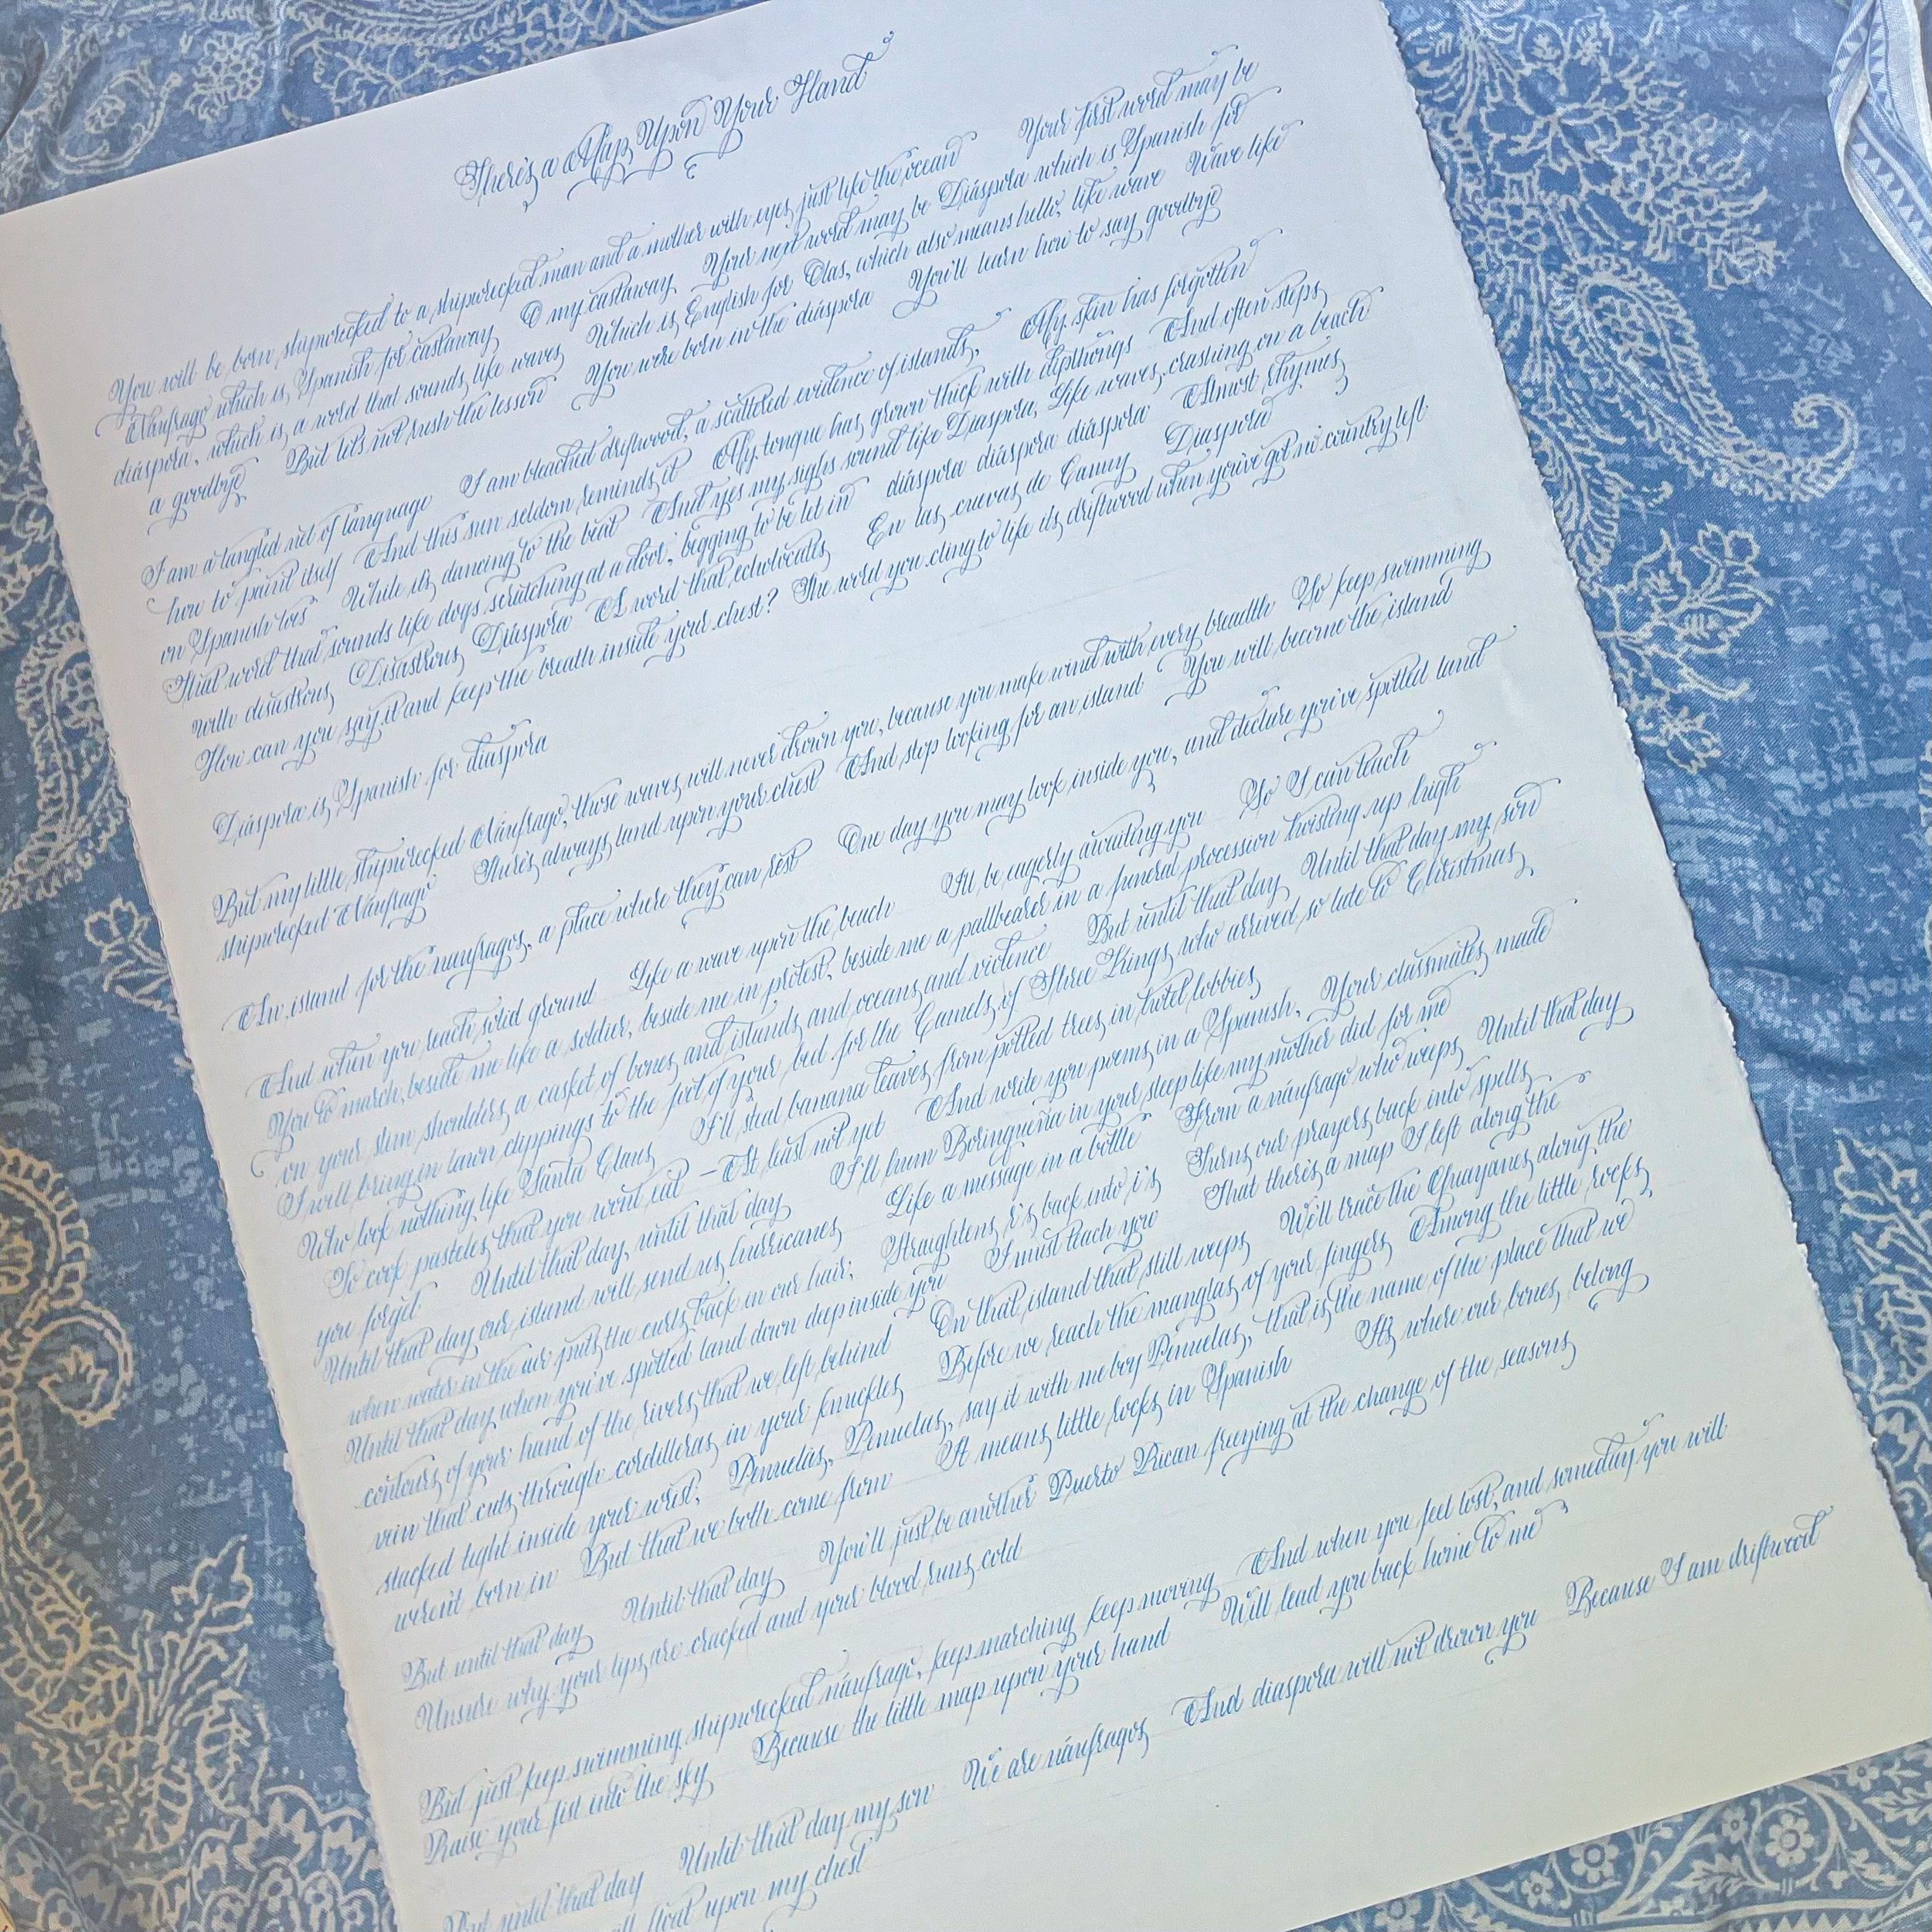 There's a Map Upon Your Hand
You will be born shipwrecked to a shipwrecked man and a mother with eyes just like the ocean Your first word may be
Náufrago which is Spanish for castaway O my castaway Your next word may be Diáspora which is Spanish for
diaspora, which is a word that sounds like waves Which is English for Olas, which also means hello, like wave Wave like
a goodbye But let's not rush the lesson You were born in the diáspora You'll learn how to say goodbye
I am a tangled net of language I am bleached driftwood, a scattered evidence of islands, My skin has forgotten
how to paint itself And this sun seldom reminds it My tongue has grown thick with dipthongs And often steps
on Spanish toes While its dancing to the beat And yes my sighs sound like Diaspora, Like waves crashing on a beach
That word that sounds like dogs scratching at a door, begging to be let in diáspora diáspora diáspora Almost rhymes
with disastrous Disastrous Diáspora A word that echolocates En las cuevas de Camuy Diaspora
How can you say it and keep the breath inside your chest? The word you cling to like its driftwood when you've got no country left
Diáspora is Spanish for diaspora
But my little shipwrecked Náufrago, those waves will never drown you, because you make wind with every breadth So keep swimming
shipwrecked Náufrago There's always land upon your chest And stop looking for an island You will become the island
An island for the naufragos, a place where they can rest One day you may look inside you, and declare you've spotted land
And when you reach solid ground Like a wave upon the beach I'll be eagerly awaiting you So I can teach
You to march beside me like a soldier, beside me in protest, beside me a pallbearer in a funeral procession hoisting up high
on your slim shoulders a casket of bones and islands and oceans and violence But until that day Until that day my son
I will bring in lawn clippings to the foot of your bed for the Camels of Three Kings who arrived so late to Christmas
Who look nothing like Santa Claus I'll steal banana leaves from potted trees in hotel lobbies
To cook pasteles that you wont eat – At least not yet And write you poems in a Spanish, Your classmates made
you forget Until that day, until that day I'll hum Borinqueña in your sleep like my mother did for me
Until that day our island will send us hurricanes Like a message in a bottle From a náufrago who weeps Until that day
when water in the air puts the curls back in our hair; Straightens í's back into i's Turns our prayers back into spells
Until that day when you've spotted land down deep inside you I must teach you That there's a map I left along the
contours of your hand of the rivers that we left behind On that island that still weeps We'll trace the Guayanes along the
vein that cuts through cordilleras in your knuckles Before we reach the manglas of your fingers Among the little rocks
stacked tight inside your wrist; Penuelas, Penuelas, say it with me boy Penuelas, that is the name of the place that we
weren't born in But that we both come from It means little rocks in Spanish It's where our bones belong
But until that day Until that day You'll just be another Puerto Rican freezing at the change of the seasons
Unsure why your lips are cracked and your blood runs cold
But just keep swimming shipwrecked náufrago, keep marching keep moving And when you feel lost, and someday you will
Raise your fist into the sky Because the little map upon your hand Will lead you back home to me
But until that day Until that day my son We are náufragos And diaspora will not drown you Because I am driftwood
float upon my chest